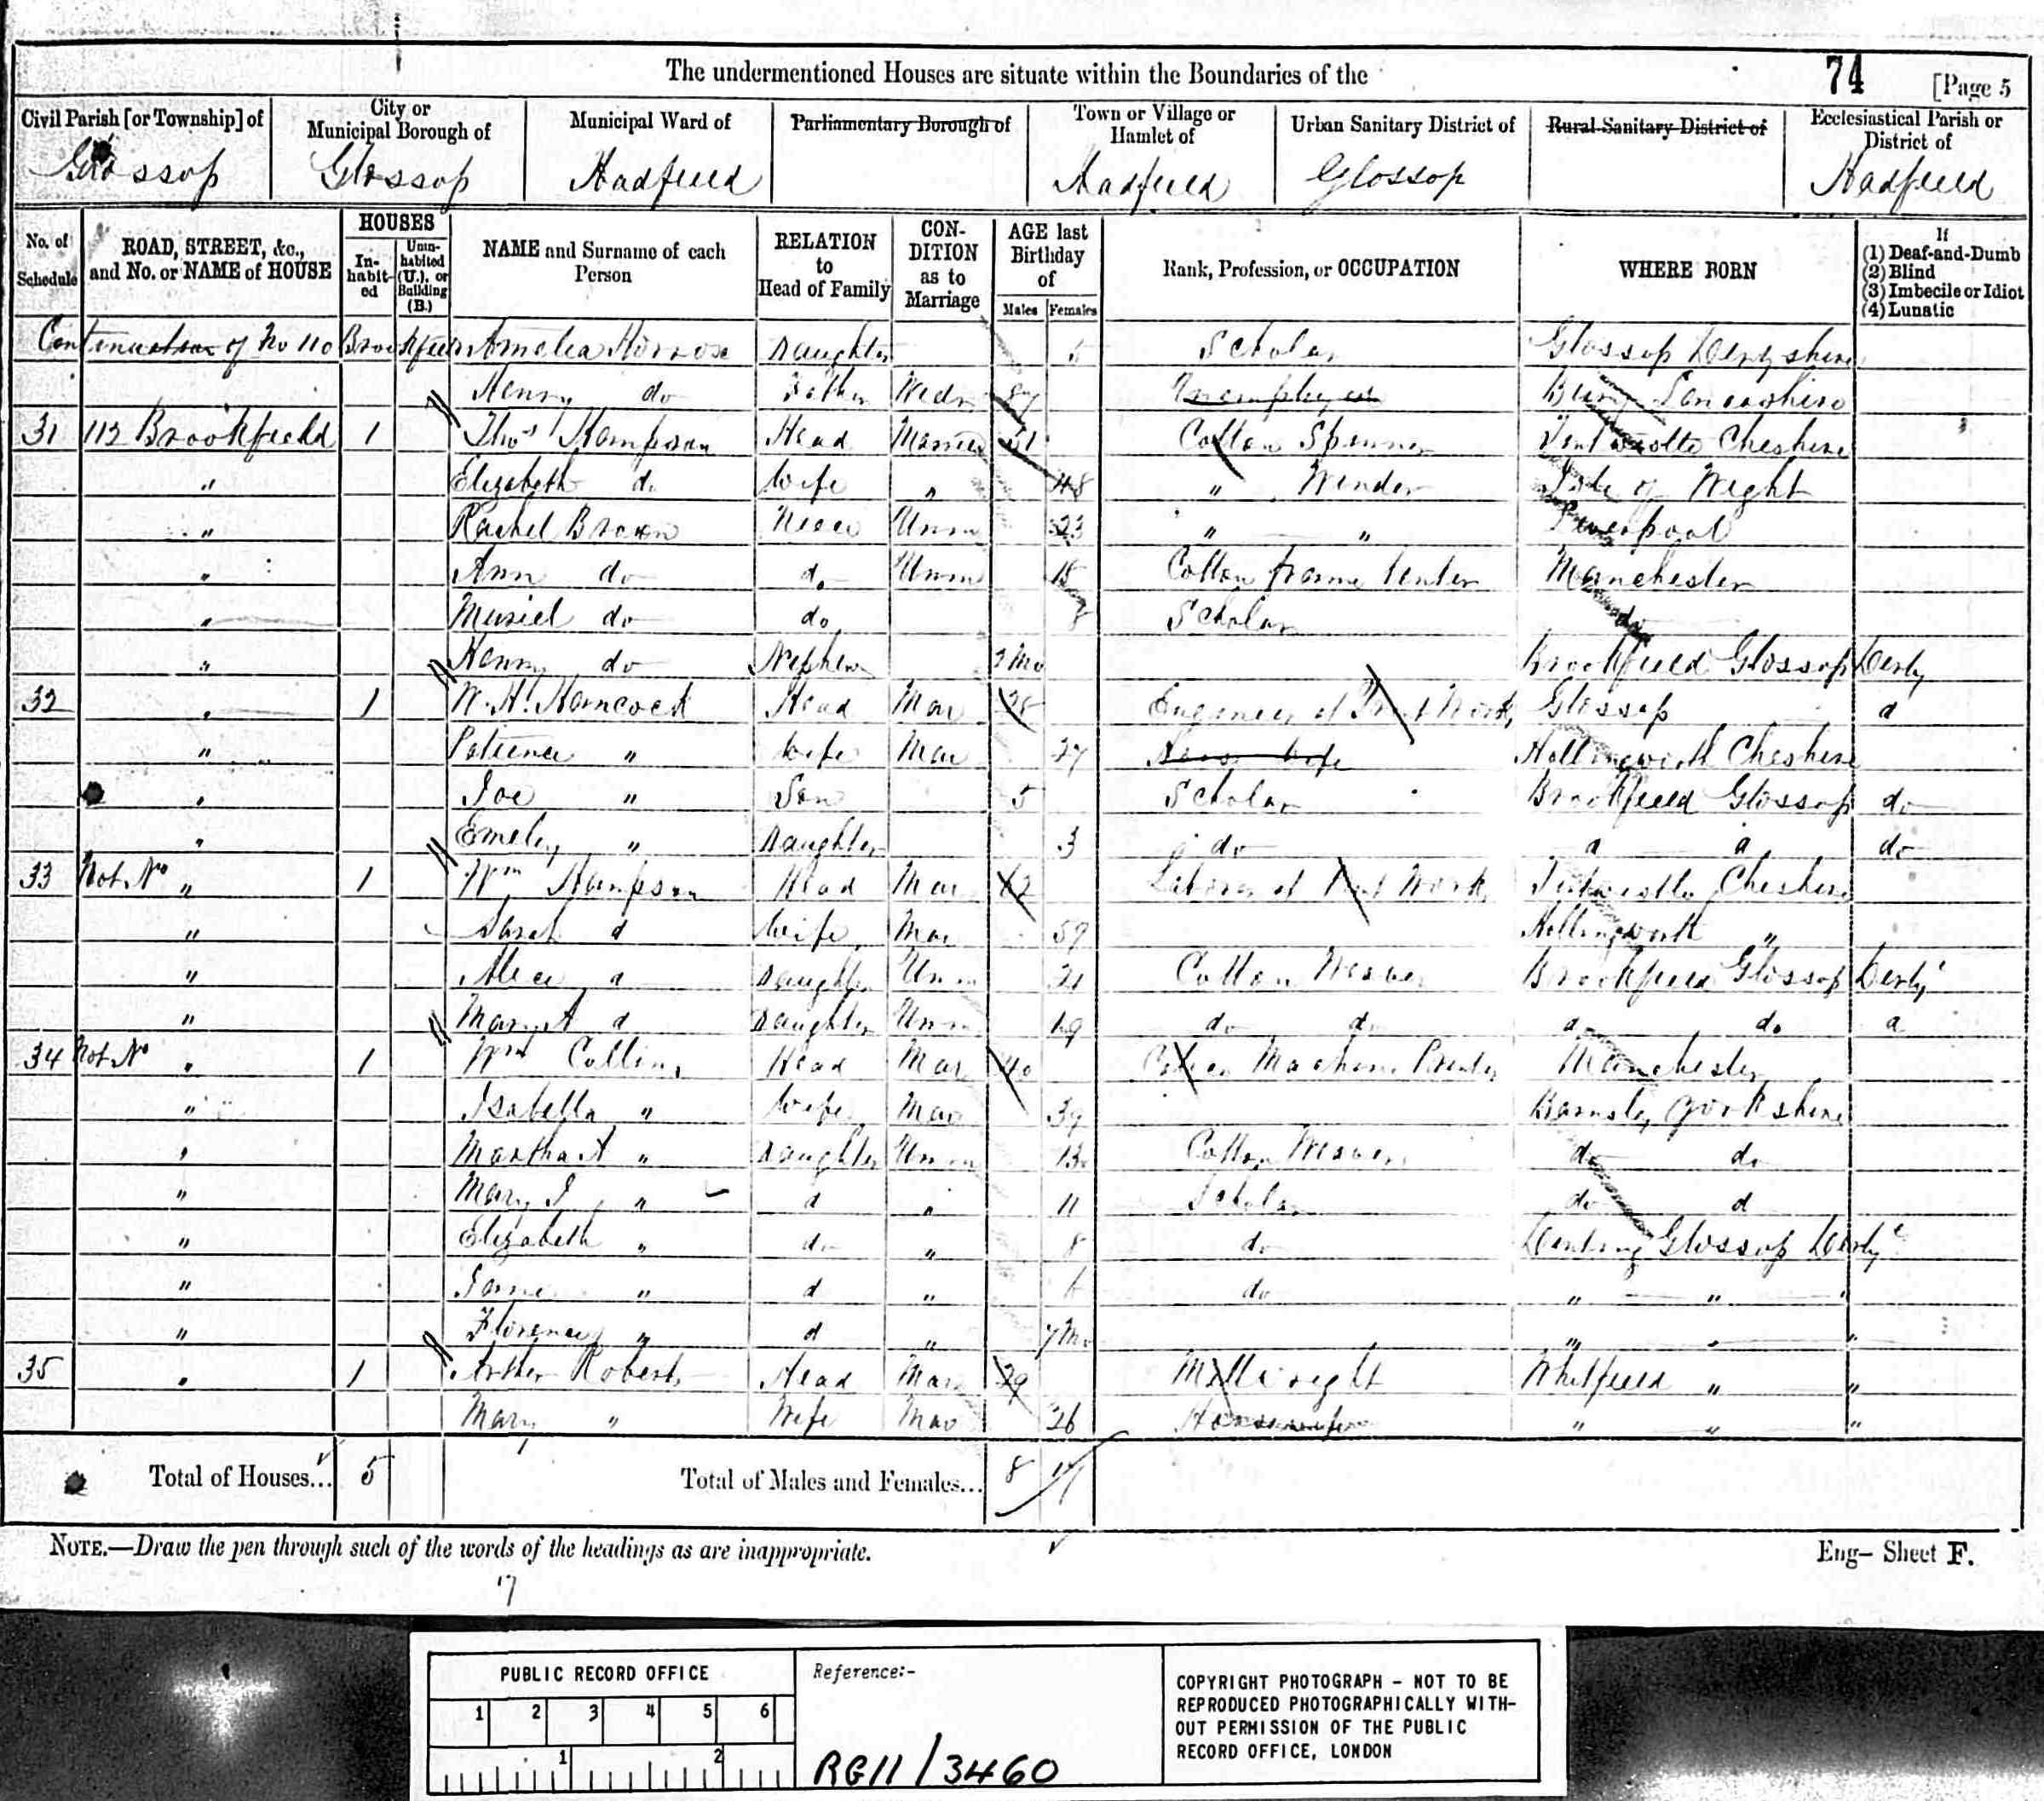 The undermentioned Houses are situate within the Boundaries of the
74 [Page 5
Civil Parish [or Township] of City or Municipal Borough of Municipal Ward of Parliamentary Borough of Town or Village or Hamlet of Urban Sanitary District of Rural Sanitary District of Ecclesiastical Parish or District of
Glossop Glossop Hadfield Hadfield Glossop Hadfield
No. of Schedule ROAD, STREET, &c., and No. or NAME of HOUSE HOUSES Inhabited Uninhabited (U.), or Building (B.) NAME and Surname of each Person RELATION to Head of Family CONDITION as to Marriage AGE last Birthday of Males Females Rank, Profession, or OCCUPATION WHERE BORN If (1) Deaf-and-Dumb (2) Blind (3) Imbecile or Idiot (4) Lunatic
Continuation of No 110 Brookfield Amelia Daughter 5 Scholar Glossop Derbyshire
Henry do Father Widr Unemployed Bury Lancashire
31 112 Brookfield 1 Thos Hampson Head Married 51 Cotton Spinner Cheshire
" Elizabeth do Wife " 48 " Winder Isle of Wight
" Rachel Brown Neece Unm 23 " " Liverpool
" Ann do do Unm 15 Cotton frame tenter Manchester
" Muriel do do Scholar do
" Henry do Nephew Mo Brookfield Glossop Derby
32 " 1 W. H. Hancock Head Mar 28 Engineer at Print Works Glossop d
" Patience " Wife Mar 27 House Wife Hollingworth Cheshire
" Joe " Son 5 Scholar Brookfield Glossop do
" Emeley " Daughter 3 do d d do
33 Not No " 1 Wm Hampson Head Mar 62 Laborer at Print Works Tintwistle Cheshire
" Sarah d Wife Mar 59 Hollingworth "
" Alice d Daughter Unm 21 Cotton Weaver Brookfield Glossop Derby
" Mary A d Daughter Unm 19 do do do do d
34 Not No " 1 Wm Collins Head Mar 40 Calico Machine Printer Manchester
" Isabella " Wife Mar 39 Barnsley Yorkshire
" Martha A " Daughter Unm 13 Cotton Weaver do do
" Mary J " d " 11 Scholar do d
" Elizabeth " do " 8 do Dinting Glossop Derby
" Jane " d " 6 do " " "
" Florence " d " 7 Mo " " "
35 " 1 Arther Roberts Head Mar 29 Millwright Whitfield " "
Mary " Wife Mar 26 Housewife " " "
Total of Houses... 5 Total of Males and Females... 8 17
NOTE.—Draw the pen through such of the words of the headings as are inappropriate.
Eng- Sheet F.
17
PUBLIC RECORD OFFICE
1 2 3 4 5 6
1 2
Reference:-
RG11/3460
COPYRIGHT PHOTOGRAPH - NOT TO BE
REPRODUCED PHOTOGRAPHICALLY WITH-
OUT PERMISSION OF THE PUBLIC
RECORD OFFICE, LONDON